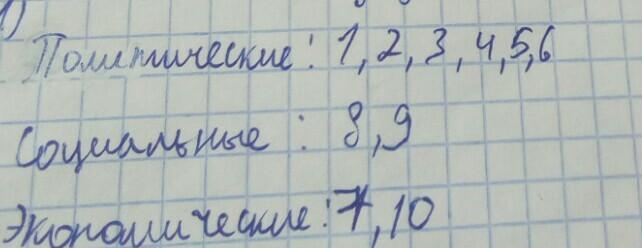 1)
Политические: 1, 2, 3, 4, 5, 6
Социальные: 8, 9
Экономические: 7, 10